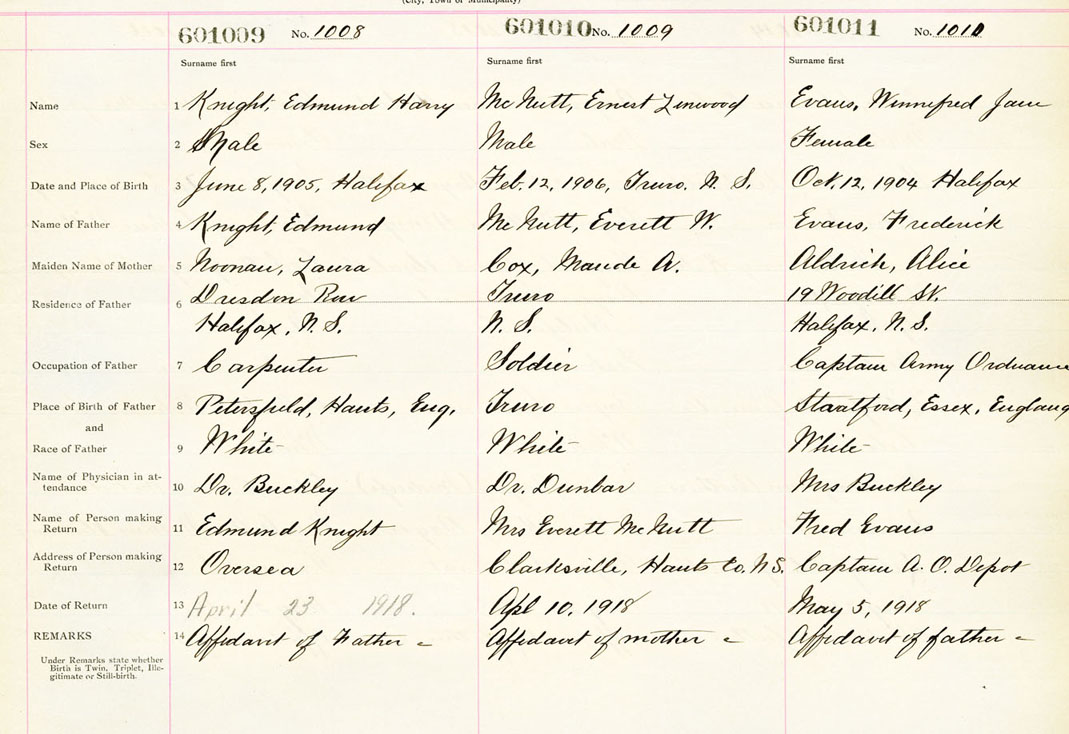 (City, Town or Municipality)
601009 No. 1008 601010 No. 1009 601011 No. 1010
Surname first Surname first Surname first
Name 1 Knight, Edmund Harry McNutt, Ernest Linwood Evans, Winnefred Jane
Sex 2 Male Male Female
Date and Place of Birth 3 June 8, 1905, Halifax Feb. 12, 1906, Truro, N. S. Oct. 12, 1904 Halifax
Name of Father 4 Knight, Edmund McNutt, Everett W. Evans, Frederick
Maiden Name of Mother 5 Noonan, Laura Cox, Maude A. Aldrich, Alice
Residence of Father 6 Dresdon Row Truro 19 Woodill St.
Halifax, N. S. N. S. Halifax, N. S.
Occupation of Father 7 Carpenter Soldier Captain Army Ordnance
Place of Birth of Father 8 Petersfield, Hants, Eng. Truro Stratford, Essex, England
and
Race of Father 9 White White White
Name of Physician in at-
tendance 10 Dr. Buckley Dr. Dunbar Mrs Buckley
Name of Person making
Return 11 Edmund Knight Mrs Everett McNutt Fred Evans
Address of Person making
Return 12 Oversea Clarksville, Hants Co. N S. Captain A. O. Depot
Date of Return 13 April 23 1918. Apl 10, 1918 May 5, 1918
REMARKS 14 Affidavit of Father - Affidavit of mother - Affidavit of father -
Under Remarks state whether
Birth is Twin, Triplet, Ille-
gitimate or Still-birth.